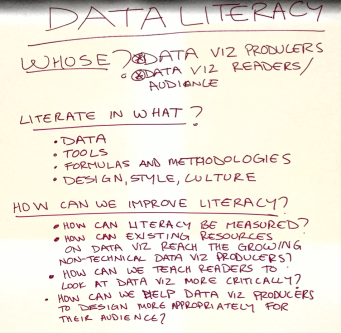 DATA LITERACY
WHOSE? DATA VIZ PRODUCERS
DATA VIZ READERS/
AUDIENCE
LITERATE IN WHAT?
• DATA
• TOOLS
• FORMULAS AND METHODOLOGIES
• DESIGN, STYLE, CULTURE
HOW CAN WE IMPROVE LITERACY?
• HOW CAN LITERACY BE MEASURED?
• HOW CAN EXISTING RESOURCES
ON DATA VIZ REACH THE GROWING
NON-TECHNICAL DATA VIZ PRODUCERS?
• HOW CAN WE TEACH READERS TO
LOOK AT DATA VIZ MORE CRITICALLY?
• HOW CAN WE HELP DATA VIZ PRODUCERS
TO DESIGN MORE APPROPRIATELY FOR
THEIR AUDIENCE?